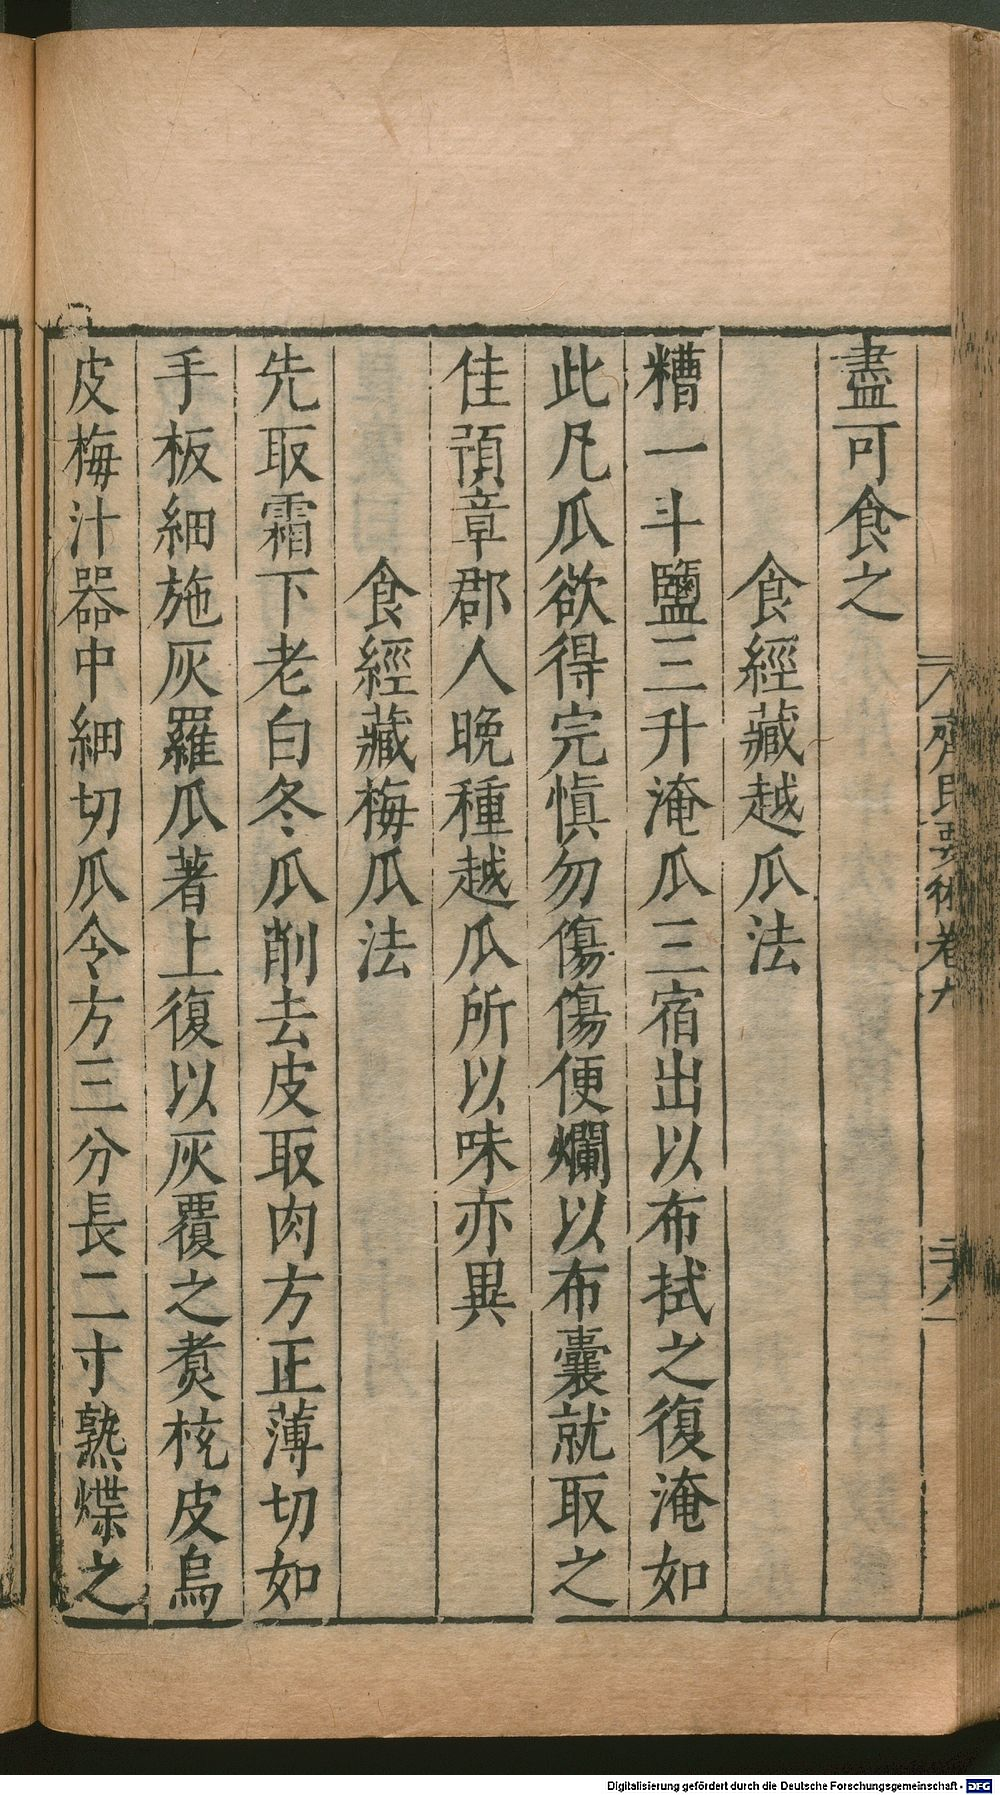 盡可食之
食經藏越瓜法
糟一斗鹽三升淹瓜三宿出以布拭之復淹如
此凡瓜欲得完慎勿傷傷便爛以布囊就取之
佳預章郡人晚種越瓜所以味亦異
食經藏梅瓜法
先取霜下老白冬瓜削去皮取肉方正薄切如
手板細施灰羅瓜著上復以灰覆之煑杬皮烏
皮梅汁器中細切瓜令方三分長二寸熟煠之
齊民要術卷九
Digitalisierung gefördert durch die Deutsche Forschungsgemeinschaft - DFG